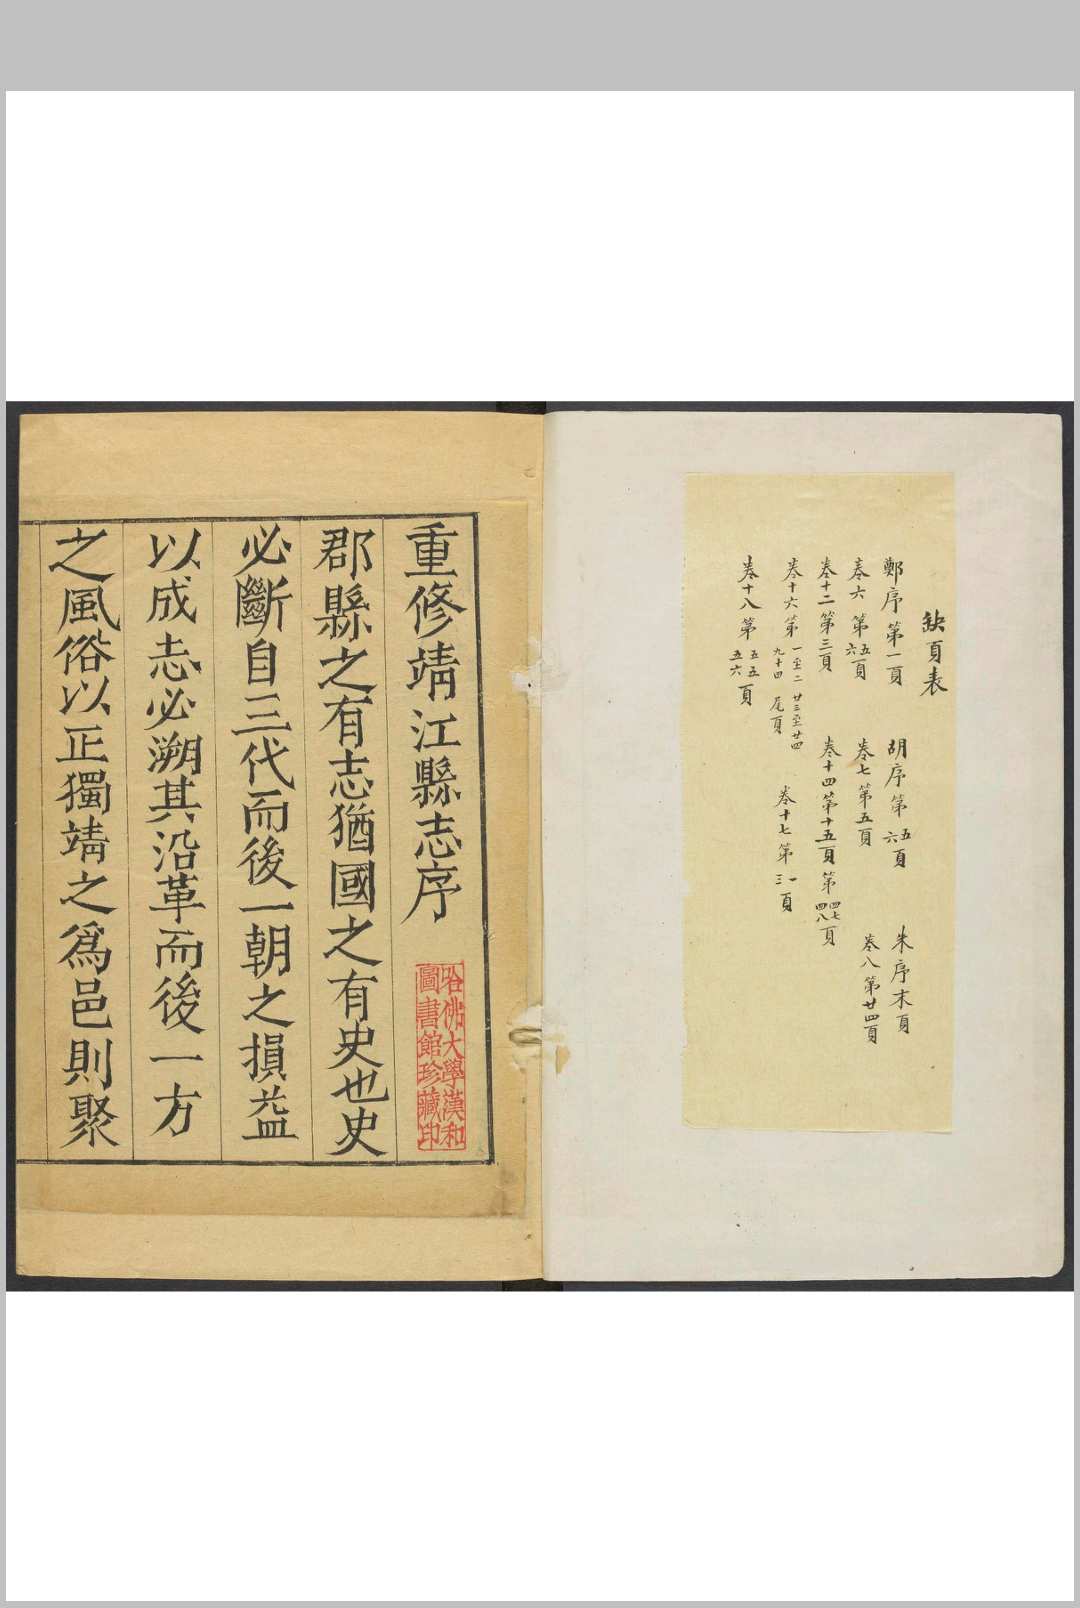 缺頁表
鄭序第一頁　胡序第五六頁　朱序末頁
卷六第五六頁　卷七第五頁　卷八第廿四頁
卷十二第三頁　卷十四第十五頁第四七四八頁
卷十六第一至二　廿三至廿四　九十四　尾頁　卷十七第一三頁
卷十八第五五五六頁
重修靖江縣志序
哈佛大學漢和
圖書館珍藏印
郡縣之有志猶國之有史也史
必斷自三代而後一朝之損益
以成志必溯其沿革而後一方
之風俗以正獨靖之爲邑則聚